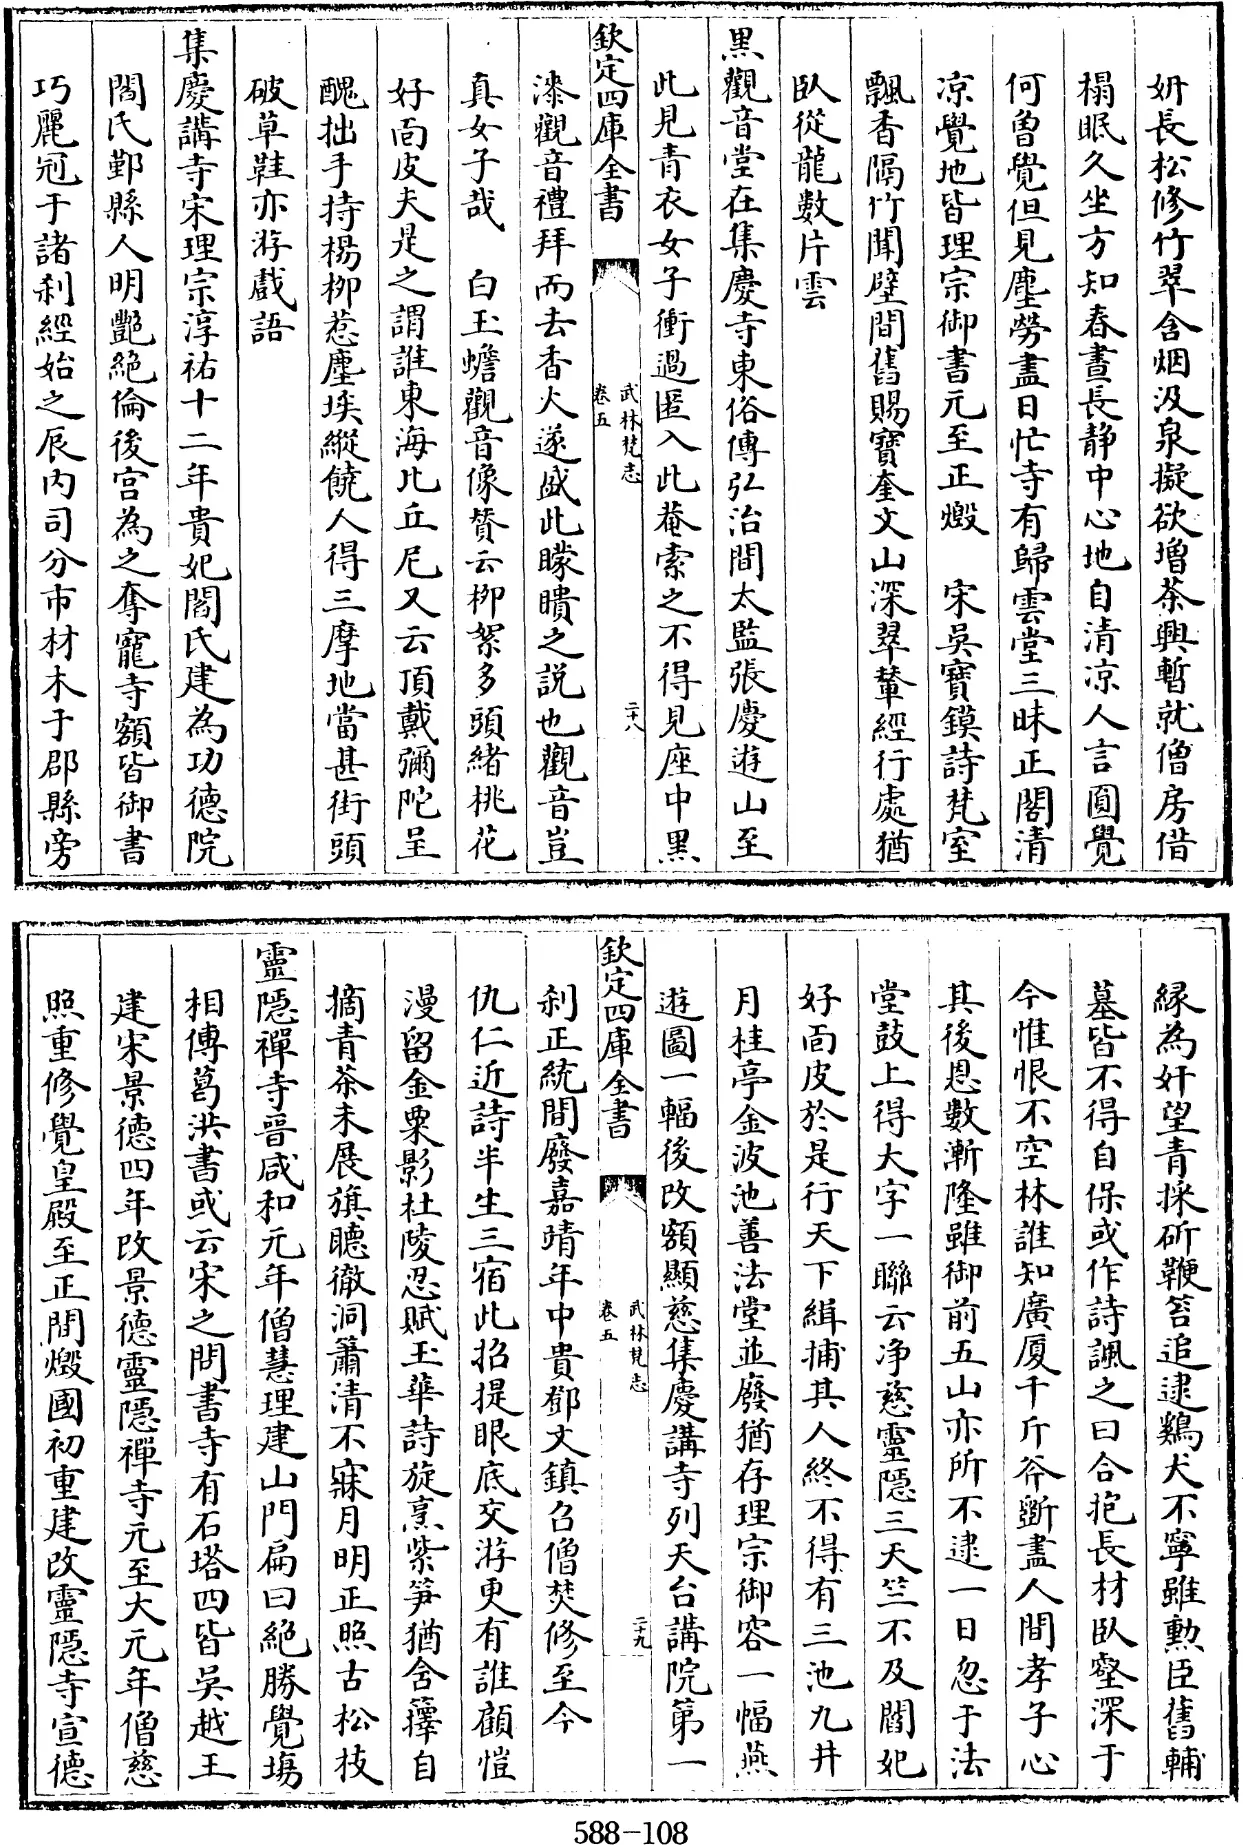 妍長松修竹翠含烟汲泉擬欲增茶興暫就僧房借
榻眠久坐方知春晝長静中心地自清凉人言圓覺
何曾覺但見塵勞盡日忙寺有歸雲堂三昧正閣清
凉覺地皆理宗御書元至正燬 宋吳寶鏌詩梵室
飄香隔竹聞壁間舊賜寶奎文山深翠輦經行處猶
臥從龍數片雲
黑觀音堂在集慶寺東俗傳弘治間太監張慶遊山至
此見青衣女子衝過匿入此菴索之不得見座中黑
欽定四庫全書
武林梵志
卷五
二十八
漆觀音禮拜而去香火遂盛此矇瞶之説也觀音豈
真女子哉 白玉蟾觀音像贊云柳絮多頭緒桃花
好面皮夫是之謂誰東海比丘尼又云頂戴彌陀呈
醜拙手持楊柳惹塵埃縱饒人得三摩地當甚街頭
破草鞋亦游戲語
集慶講寺宋理宗淳祐十二年貴妃閻氏建為功德院
閻氏鄞縣人明艷絶倫後宮為之奪寵寺額皆御書
巧麗冠于諸刹經始之辰内司分市材木于郡縣旁
緣為奸望青採斫鞭笞追逮鷄犬不寧雖勲臣舊輔
墓皆不得自保或作詩諷之曰合抱長材臥壑深于
今惟恨不空林誰知廣厦千斤斧斵盡人間孝子心
其後恩數漸隆雖御前五山亦所不逮一日忽于法
堂鼓上得大字一聯云净慈靈隱三天竺不及閻妃
好面皮於是行天下緝捕其人終不得有三池九井
月桂亭金波池善法堂並廢猶存理宗御容一幅燕
遊圖一輻後改額顯慈集慶講寺列天台講院第一
欽定四庫全書
武林梵志
卷五
二十九
刹正統間廢嘉靖年中貴鄧文鎮召僧焚修至今
仇仁近詩半生三宿此招提眼底交游更有誰顧愷
漫留金粟影杜陵忍賦玉華詩旋烹紫笋猶含籜自
摘青茶未展旗聽徹洞簫清不寐月明正照古松枝
靈隱禪寺晉咸和元年僧慧理建山門扁曰絶勝覺塲
相傳葛洪書或云宋之問書寺有石塔四皆吳越王
建宋景德四年改景德靈隱禪寺元至大元年僧慈
照重修覺皇殿至正間燬國初重建改靈隱寺宣德
588-108